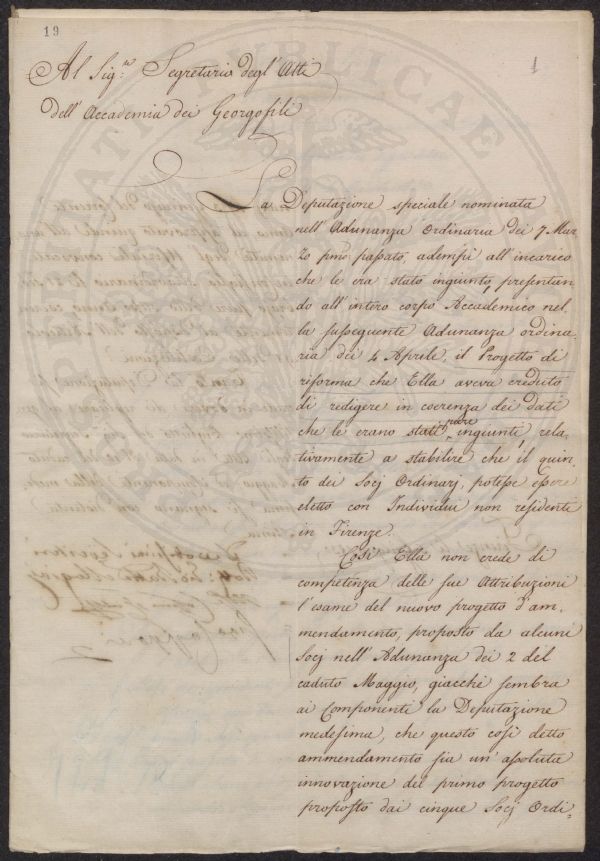 19
1
Al Sig.re Segretario degl'Atti
dell'Accademia dei Georgofili
La Deputazione speciale nominata
nell'Adunanza Ordinaria dei 7 Mar=
zo pmo passato, adempì all'incarico
che le era stato ingiunto, presentan=
do all'intero corpo Accademico nel=
la susseguente Adunanza ordina=
ria dei 4 Aprile, il Progetto di
riforma che Ella aveva creduto
di redigere in coerenza dei dati
che le erano stati pure ingiunti, rela=
tivamente a stabilire che il quin=
to dei Socj Ordinarj, potesse essere
eletto con Individui non residenti
in Firenze.
Così Ella non crede di
competenza delle sue Attribuzioni
l'esame del nuovo progetto d'am=
mendamento, proposto da alcuni
Socj nell'Adunanza dei 2 del
caduto Maggio, giacchè sembra
ai Componenti la Deputazione
medesima, che questo così detto
ammendamento sia un'assoluta
innovazione del primo progetto
proposto dai cinque Socj Ordi=